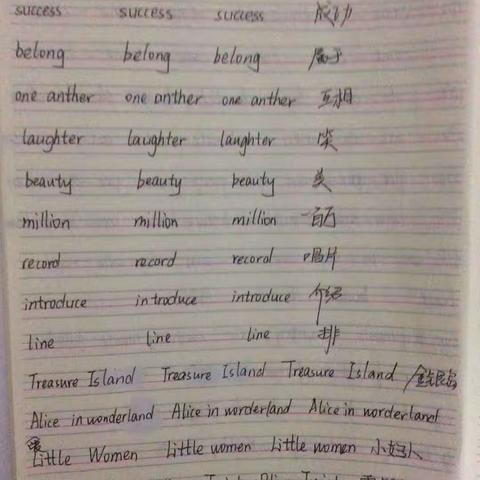 success success success 成功
belong belong belong 属于
one anther one anther one anther 互相
laughter laughter laughter 笑
beauty beauty beauty 美
million million million 一百万
record record record 唱片
introduce introduce introduce 介绍
line line line 排
Treasure Island Treasure Island Treasure Island 金银岛
Alice in wonderland Alice in worderland Alice in worderland
Little Women Little women Little women 小妇人